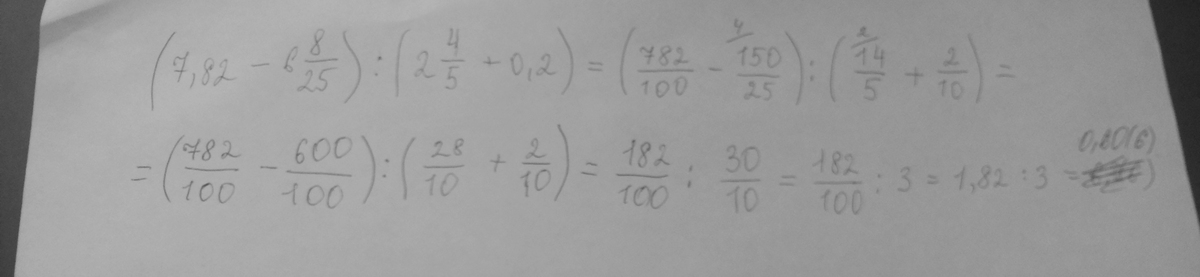 (7,82 - 6 8/25) : (2 4/5 + 0,2) = (782/100 - 150/25 4/) : (14/5 2/ + 2/10) =
= (782/100 - 600/100) : (28/10 + 2/10) = 182/100 : 30/10 = 182/100 : 3 = 1,82 : 3 = 0,60(6)